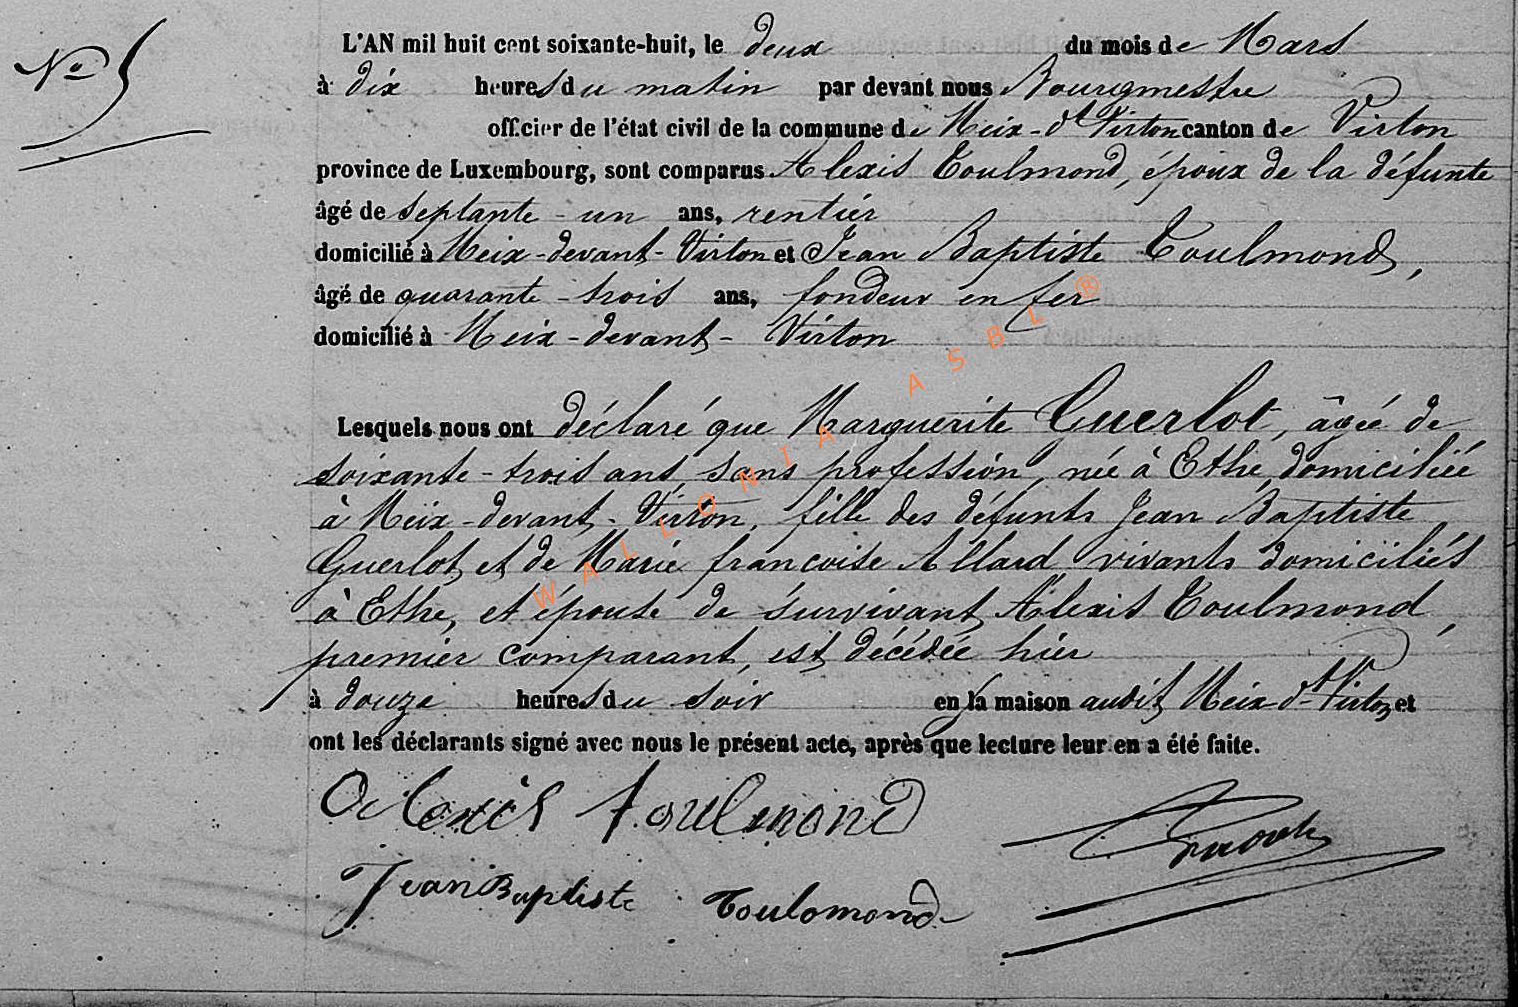 N° 5
L'AN mil huit cent soixante-huit, le deux du mois de Mars
à dix heures du matin par devant nous Bourgmestre
officier de l'état civil de la commune de Meix-dt Virton canton de Virton
province de Luxembourg, sont comparus Alexis Toulmond, époux de la défunte
âgé de septante-un ans, rentier
domicilié à Meix-devant-Virton et Jean Baptiste Toulmond,
âgé de quarante-trois ans, fondeur en fer
domicilié à Meix-devant-Virton
Lesquels nous ont déclaré que Marguerite Guerlot, âgée de
soixante-trois ans, sans profession, née à Ethe, domiciliée
à Meix-devant-Virton, fille des défunts Jean Baptiste
Guerlot et de Marie françoise Allard vivants domiciliés
à Ethe, et épouse de survivant Alexis Toulmond,
premier comparant, est décédée hier
à douze heures du soir en la maison audit Meix-dt-Virton et
ont les déclarants signé avec nous le présent acte, après que lecture leur en a été faite.
Alexis toulmond
Jean Baptiste Toulomond
WALLONIA ASBL ®